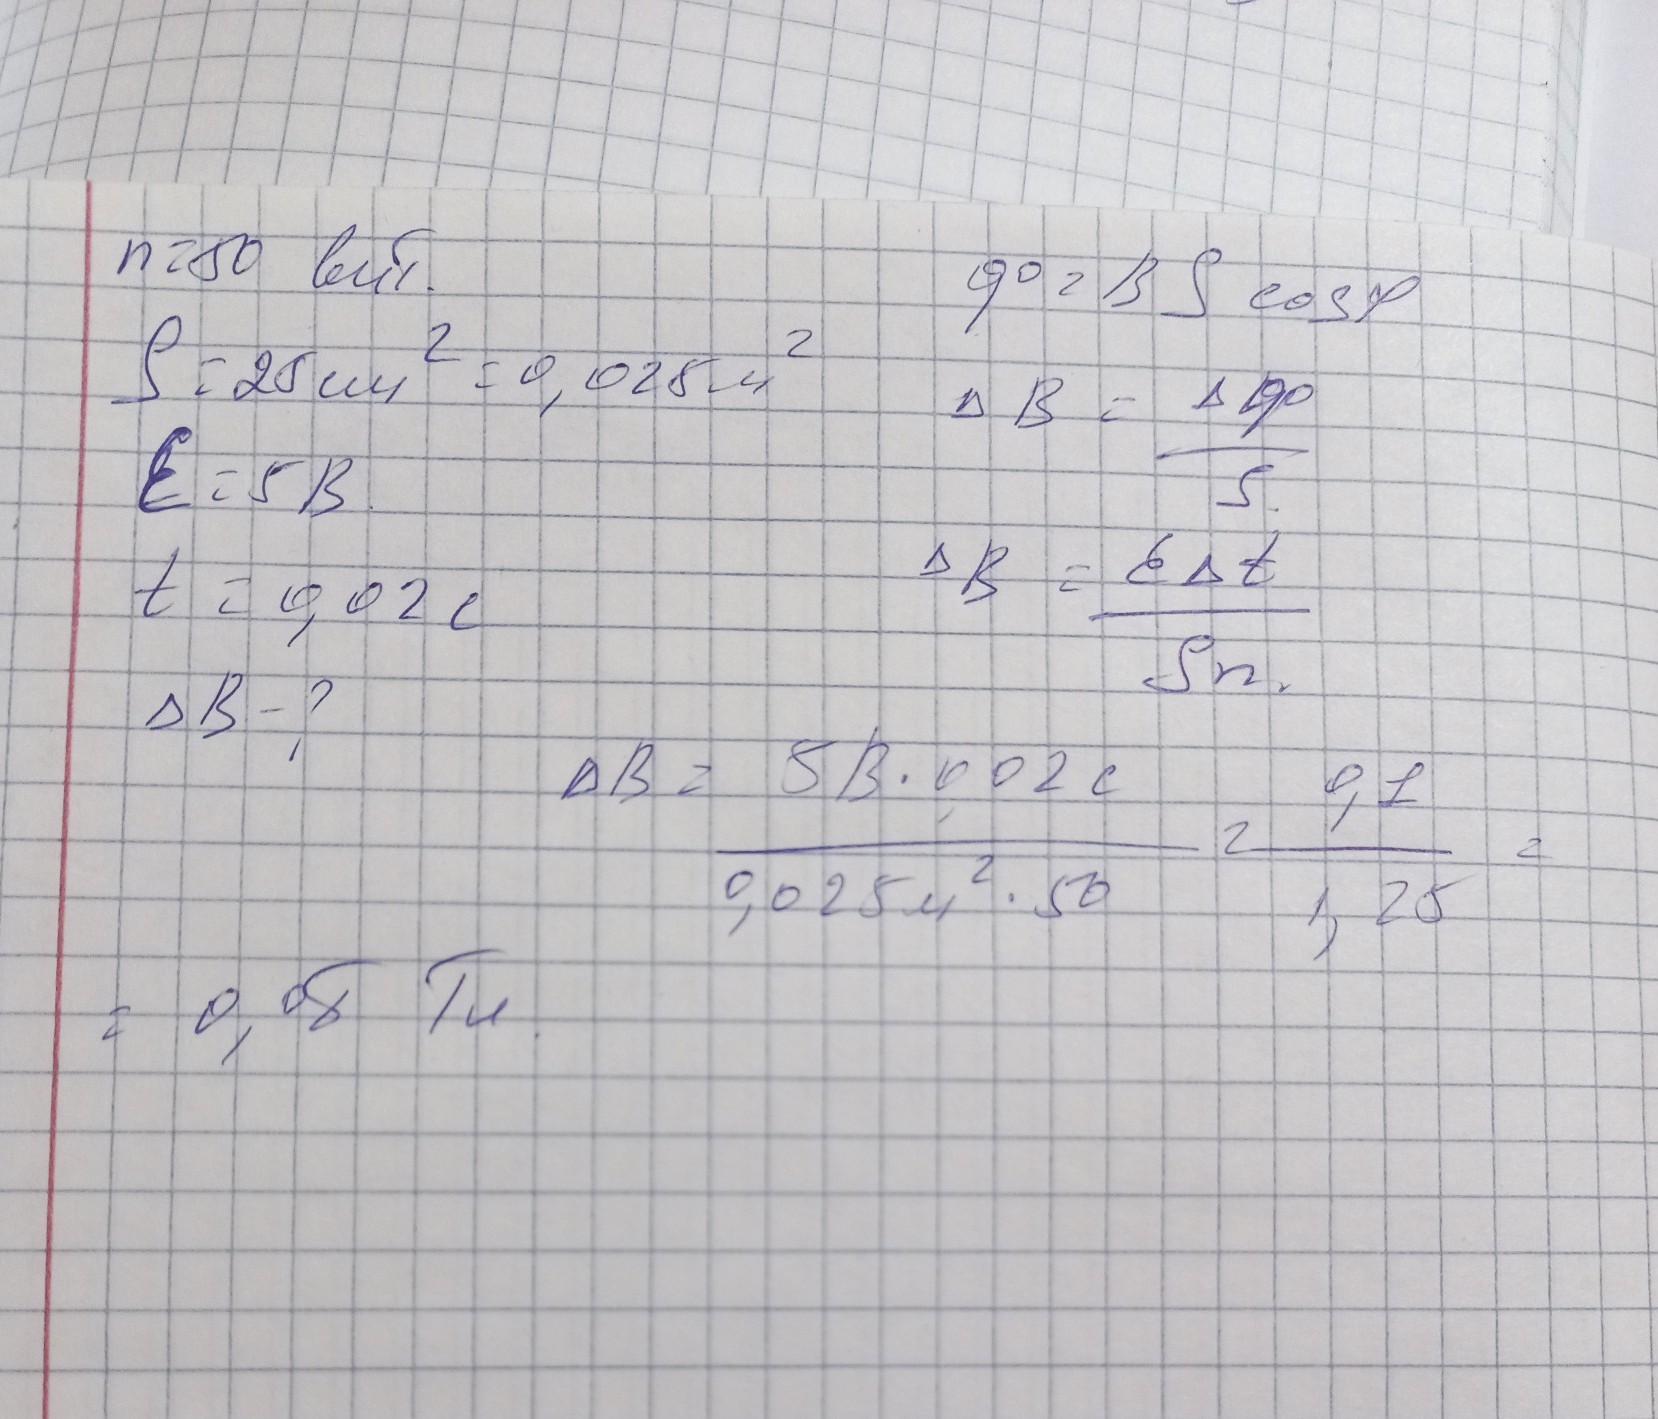 n=50 вит.
S=25см²=0,025м²
Ɛ=5В
t=0,02с
ΔB-?
φ=BS cosφ
ΔB = ΔΦ/S
ΔB = ƐΔt/Sn.
ΔB = 5В·0,02с/0,025м²·50 = 0,1/1,25 =
= 0,08 Тл.